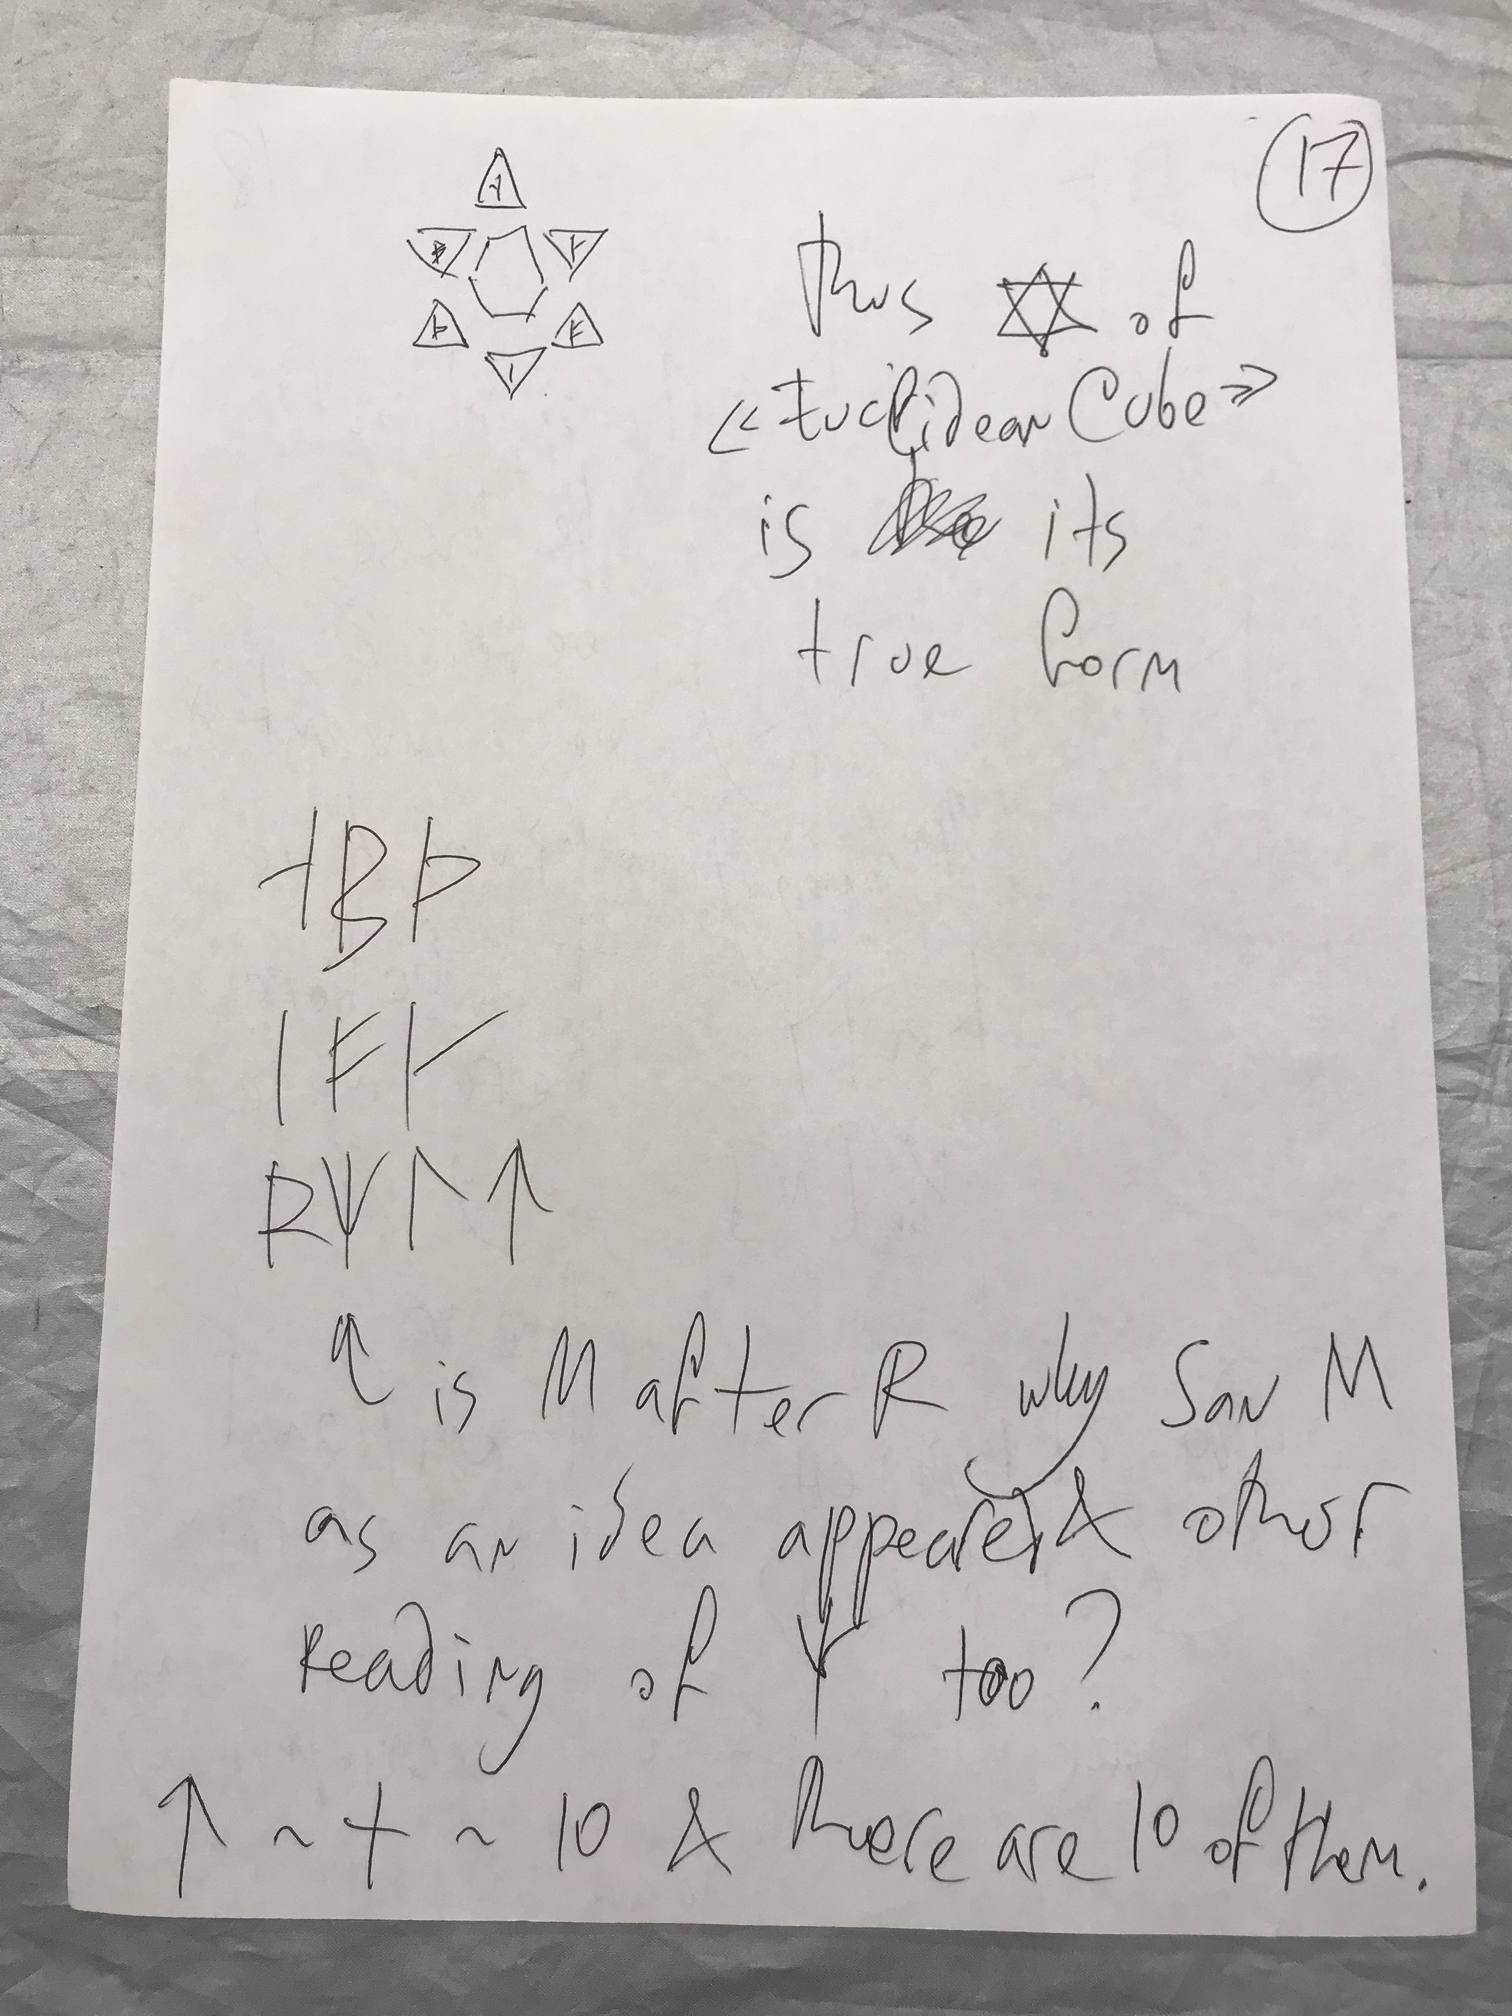 17
thus ✡ of
«Euclidean Cube»
is its
true form
ᛆ B ᚦ
ᛁ ᚠ ᚴ
R ᛘ ᛚ ↑
↑ is M after R why San M
as an idea appeared & other
reading of ᛘ too?
↑ ~ + ~ 10 & there are 10 of them.